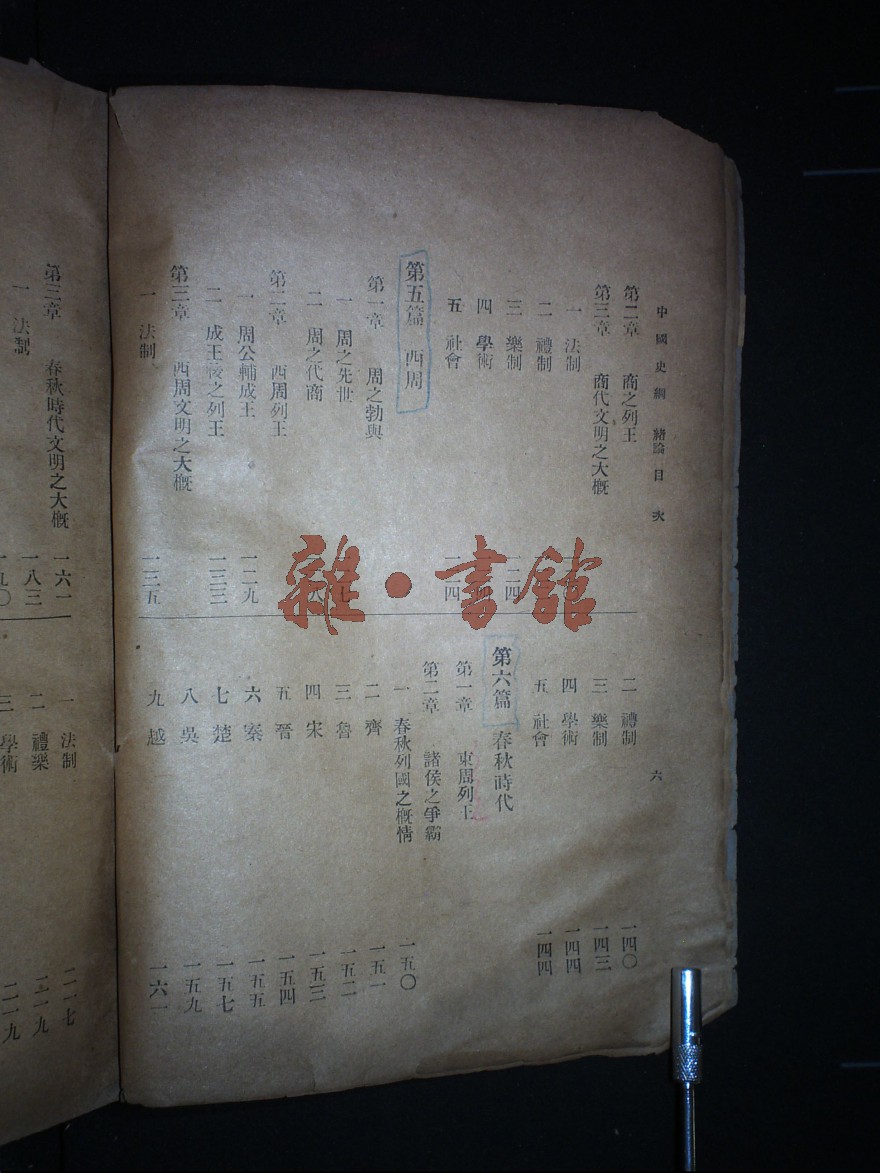 中國史綱 緒論目次
六
第二章 商之列王
第三章 商代文明之大概
一 法制
二 禮制
三 樂制
四 學術
五 社會 一二四
第五篇 西周
第一章 周之勃興
一 周之先世
二 周之代商
第二章 西周列王
一 周公輔成王 一二九
二 成王後之列王 一三三
第三章 西周文明之大概
一 法制 一三五
二 禮制 一四〇
三 樂制 一四三
四 學術 一四四
五 社會 一四四
第六篇 春秋時代
第一章 東周列王
第二章 諸侯之爭霸
一 春秋列國之概情 一五〇
二 齊 一五一
三 魯 一五二
四 宋 一五三
五 晉 一五四
六 秦 一五五
七 楚 一五七
八 吳 一五九
九 越 一六一
第三章 春秋時代文明之大概 一六一
一 法制 一八三
一九〇
一 法制 二一七
二 禮樂 二一九
三 學術 二一九
雜·書館